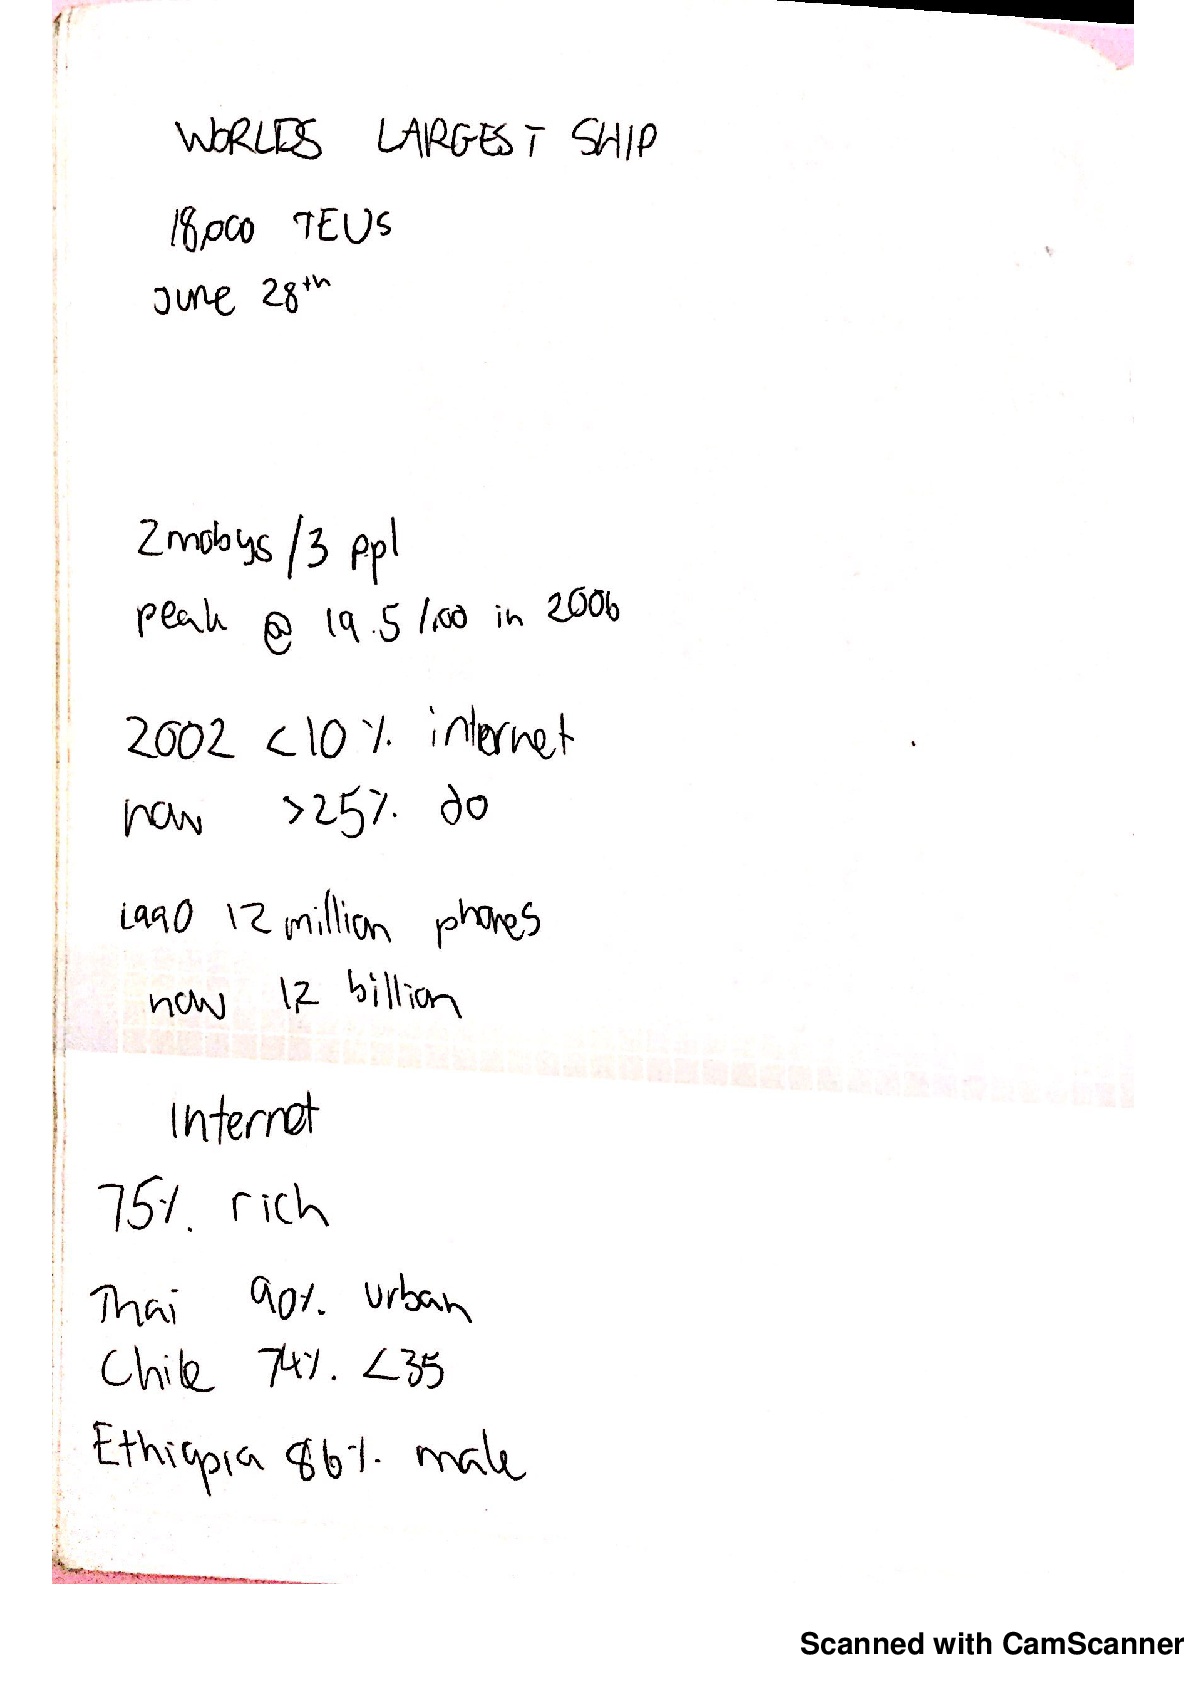 WORLDS LARGEST SHIP
18,000 TEUS
June 28th
2mobys /3 ppl
peak @ 19.5 /100 in 2006
2002 <10% internet
now >25% do
1990 12 million phones
now 12 billion
Internet
75% rich
Thai 90% urban
Chile 74% <35
Ethiopia 86% male
Scanned with CamScanner